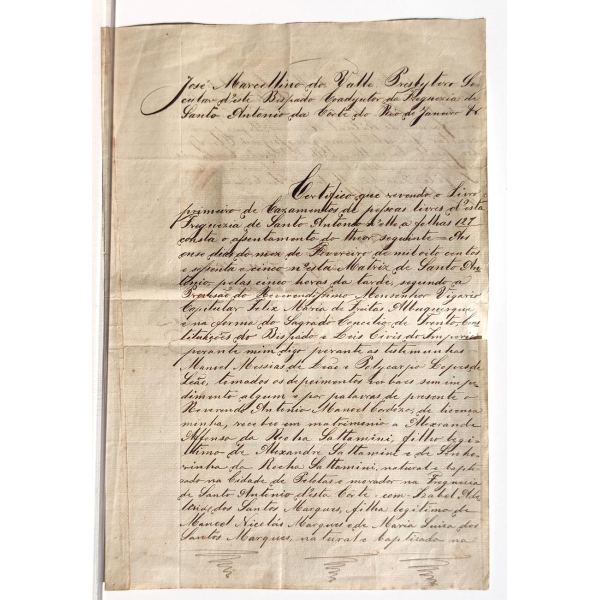 José Marcellino do Valle Presbytero Se-
cular d'este Bispado Coadjutor da Freguezia de
Santo Antonio da Côrte do Rio de Janeiro &
Certifico que revendo o Livro
primeiro de Cazamentos de pessoas livres d'esta
Freguezia de Santo Antonio n'elle a folhas 127
consta o assentamento do theor seguinte = Aos
onse dias do mez de Fevereiro de mil oito centos
e sessenta e cinco n'esta Matriz de Santo An-
tonio, pelas cinco horas da tarde, segundo a
Provisão do Reverendissimo Monsenhor Vigario
Capitular Felix Maria de Freitas Albuquerque
e na forma do Sagrado Concilio de Trento, Cons
tituições do Bispado e Leis Civis do Imperio
perante mim, digo perante as testemunhas
Manoel Messias de Leão e Polycarpo Lopes de
Leão, tomados os depoimentos verbaes sem impe-
dimento algum e por palavras de presente o
Reverendo Antonio Manoel Cordozo, de licença
minha, recebeo em matrimonio a Alexandre
Affonso da Rocha Sattamini, filho legi-
thimo de Alexandre Sattamini e de Senho-
rinha da Rocha Sattamini, natural e bapti-
sado na Cidade de Pelotas e morador na Freguezia
de Santo Antonio d'esta Côrte com Izabel
dos Santos Marques, filha legitimo de
Manoel Nicolás Marques e de Maria Luiza dos
Santos Marques, natural e baptisada na